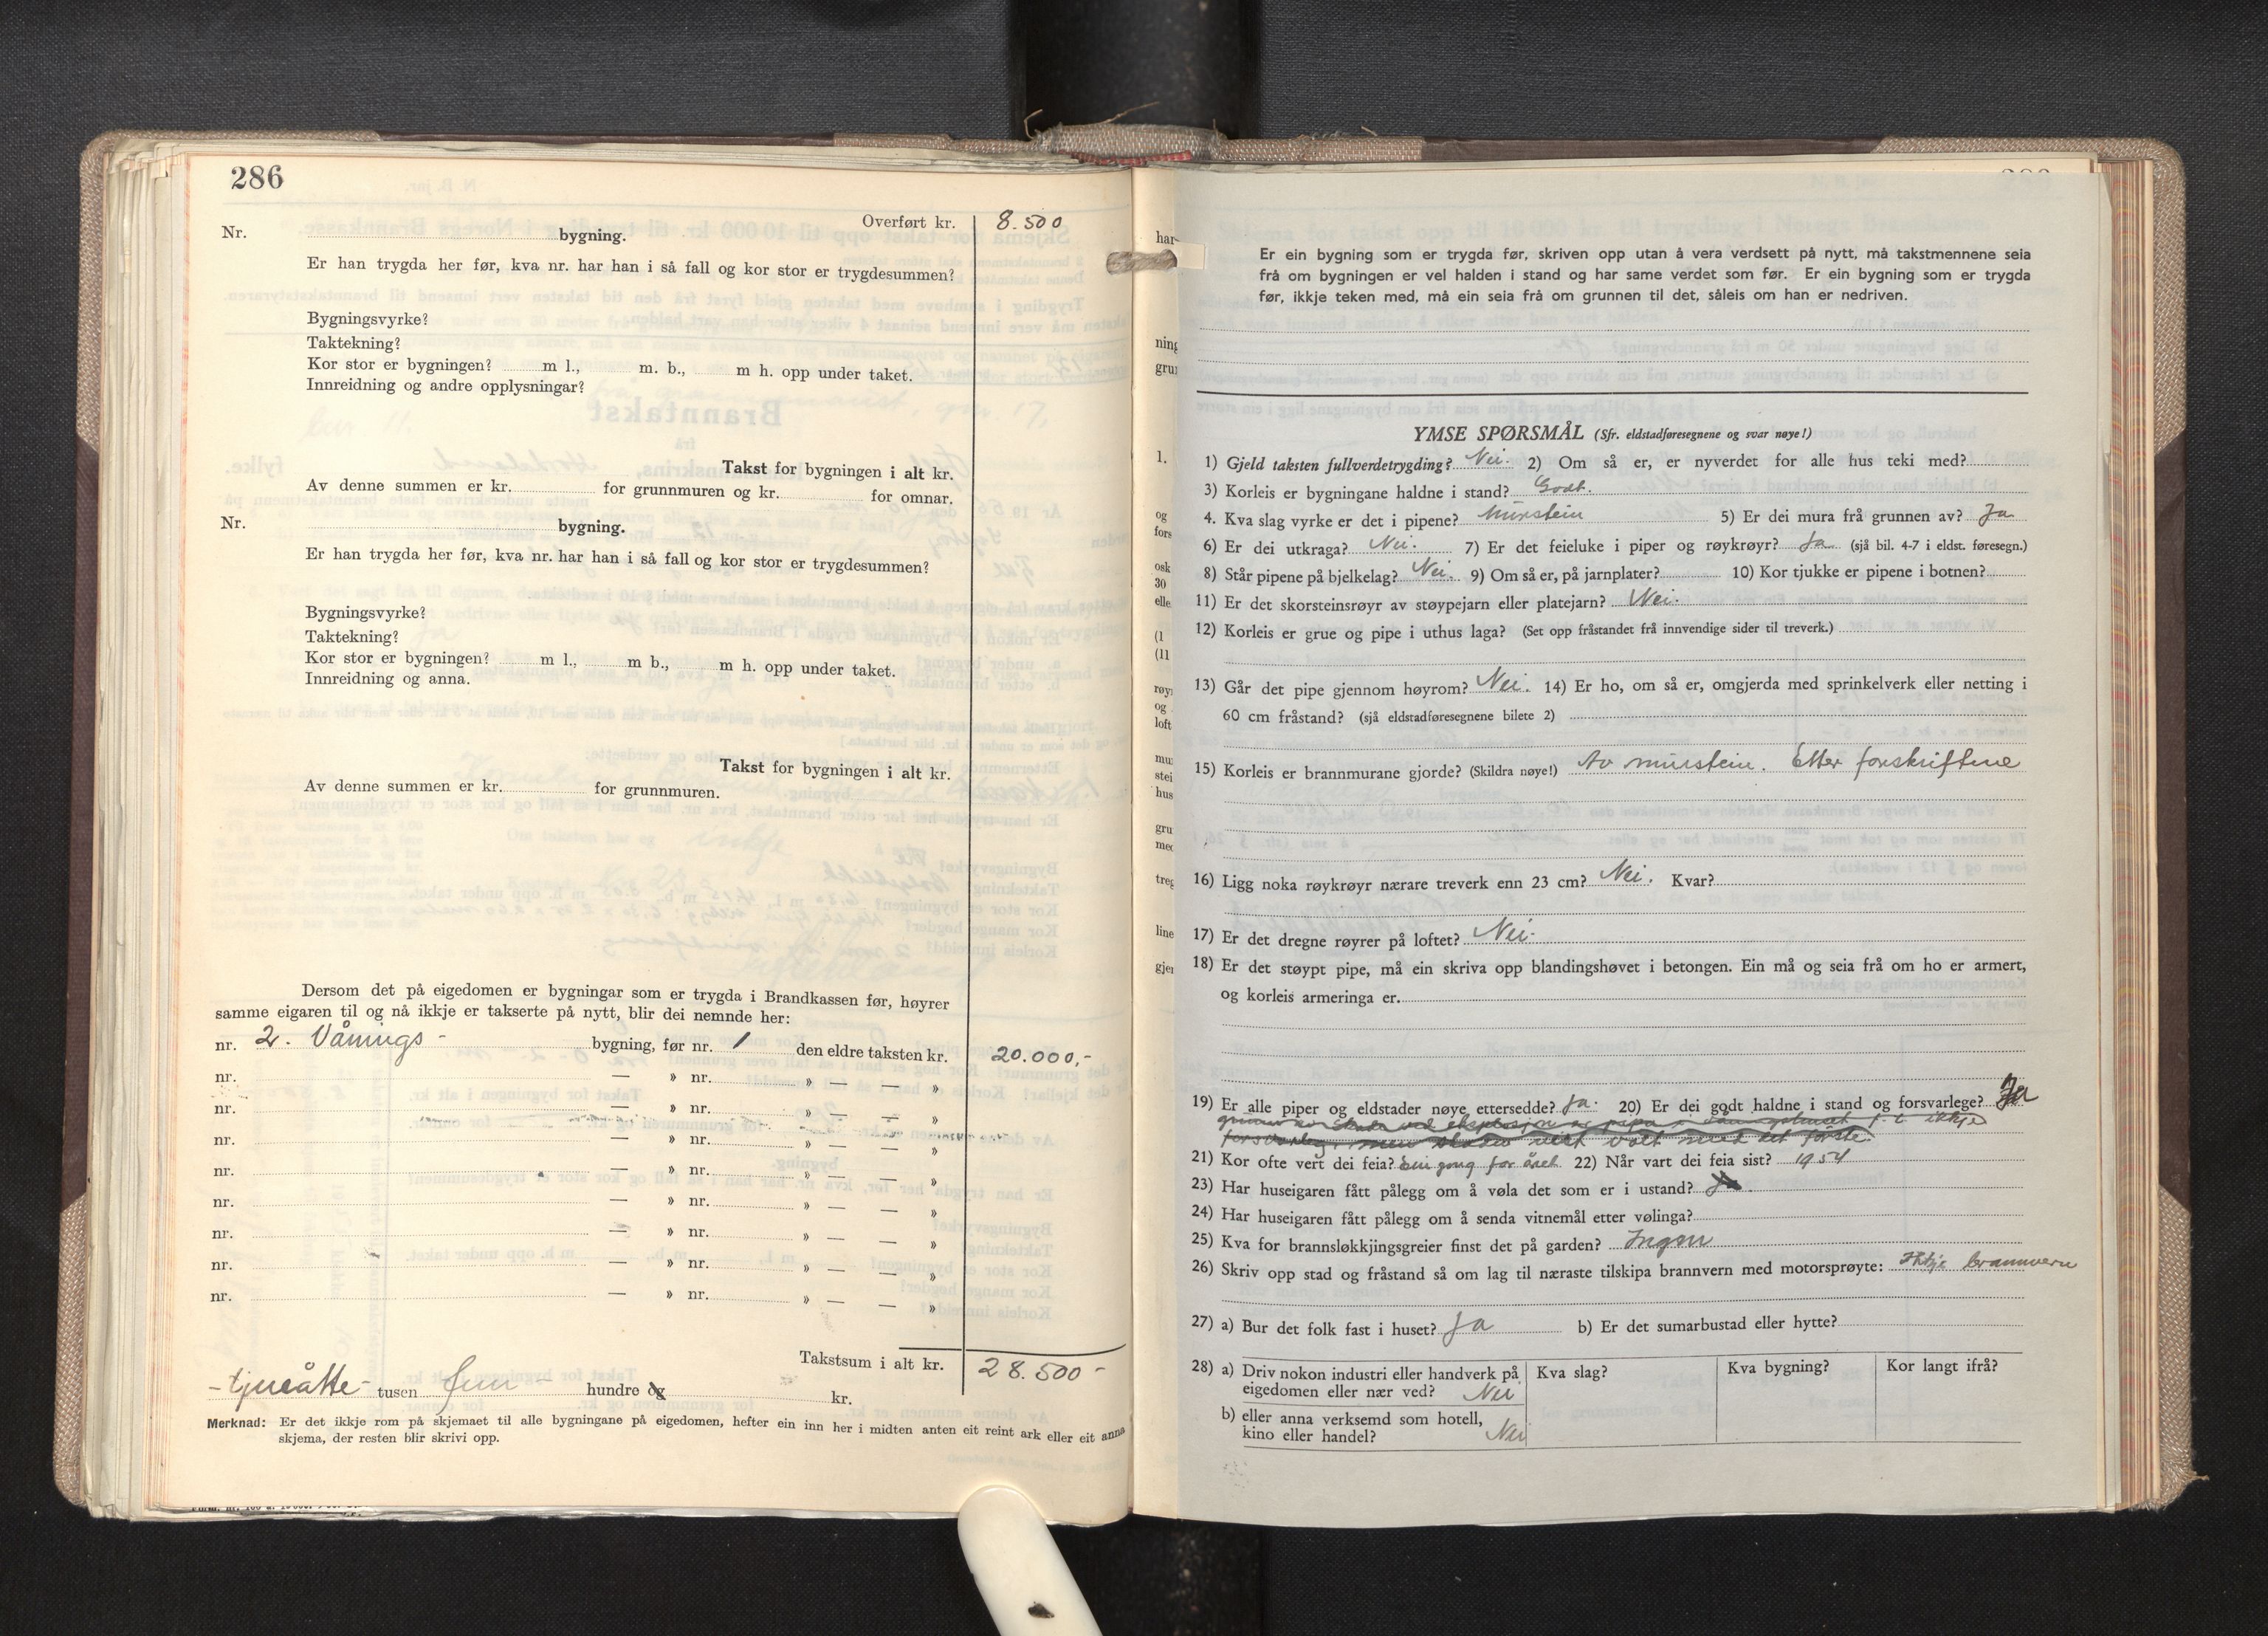 286
Overført kr. 8.500
Nr. bygning.
Er han trygda her før, kva nr. har han i så fall og kor stor er trygdesummen?
Bygningsvyrke?
Taktekning?
Kor stor er bygningen? m l., m. b., m h. opp under taket.
Innreidning og andre opplysningar?
Takst for bygningen i alt kr.
Av denne summen er kr. for grunnmuren og kr. for omnar.
Nr. bygning.
Er han trygda her før, kva nr. har han i så fall og kor stor er trygdesummen?
Bygningsvyrke?
Taktekning?
Kor stor er bygningen? m l., m b., m h. opp under taket.
Innreidning og anna.
Takst for bygningen i alt kr.
Av denne summen er kr. for grunnmuren.
Dersom det på eigedomen er bygningar som er trygda i Brandkassen før, høyrer
samme eigaren til og nå ikkje er takserte på nytt, blir dei nemnde her:
nr. 2. Vånings- bygning, før nr. 1 den eldre taksten kr. 20.000,-
nr. — » nr. » — — »
nr. — » nr. » — — »
nr. — » nr. » — — »
nr. — » nr. » — — »
nr. — » nr. » — — »
nr. — » nr. » — — »
nr. — » nr. » — — »
nr. — » nr. » — — »
Takstsum i alt kr. 28.500-
-tjueåtte- tusen fem - hundre og kr.
Merknad: Er det ikkje rom på skjemaet til alle bygningane på eigedomen, hefter ein inn her i midten anten eit reint ark eller eit anna
skjema, der resten blir skrivi opp.
Er ein bygning som er trygda før, skriven opp utan å vera verdsett på nytt, må takstmennene seia
frå om bygningen er vel halden i stand og har same verdet som før. Er ein bygning som er trygda
før, ikkje teken med, må ein seia frå om grunnen til det, såleis om han er nedriven.
YMSE SPØRSMÅL (Sfr. eldstadføresegnene og svar nøye!)
1) Gjeld taksten fullverdetrygding? Nei. 2) Om så er, er nyverdet for alle hus teki med?
3) Korleis er bygningane haldne i stand? Godt.
4. Kva slag vyrke er det i pipene? Murstein 5) Er dei mura frå grunnen av? Ja
6) Er dei utkraga? Nei. 7) Er det feieluke i piper og røykrøyr? Ja (sjå bil. 4-7 i eldst. føresegn.)
8) Står pipene på bjelkelag? Nei. 9) Om så er, på jarnplater? 10) Kor tjukke er pipene i botnen?
11) Er det skorsteinsrøyr av støypejarn eller platejarn? Nei.
12) Korleis er grue og pipe i uthus laga? (Set opp fråstandet frå innvendige sider til treverk.)
13) Går det pipe gjennom høyrom? Nei. 14) Er ho, om så er, omgjerda med sprinkelverk eller netting i
60 cm fråstand? (sjå eldstadføresegnene bilete 2)
15) Korleis er brannmurane gjorde? (Skildra nøye!) Av murstein. Etter forskriftene
16) Ligg noka røykrøyr nærare treverk enn 23 cm? Nei. Kvar?
17) Er det dregne røyrer på loftet? Nei.
18) Er det støypt pipe, må ein skriva opp blandingshøvet i betongen. Ein må og seia frå om ho er armert,
og korleis armeringa er.
19) Er alle piper og eldstader nøye ettersedde? Ja. 20) Er dei godt haldne i stand og forsvarlege? Ja
21) Kor ofte vert dei feia? Ein gong for året 22) Når vart dei feia sist? 1954
23) Har huseigaren fått pålegg om å vøla det som er i ustand?
24) Har huseigaren fått pålegg om å senda vitnemål etter vølinga?
25) Kva for brannsløkkjingsgreier finst det på garden? Ingen
26) Skriv opp stad og fråstand så om lag til næraste tilskipa brannvern med motorsprøyte: Ikkje brannvern
27) a) Bur det folk fast i huset? Ja b) Er det sumarbustad eller hytte?
28) a) Driv nokon industri eller handverk på Kva slag? Kva bygning? Kor langt ifrå?
eigedomen eller nær ved? Nei
b) eller anna verksemd som hotell,
kino eller handel? Nei